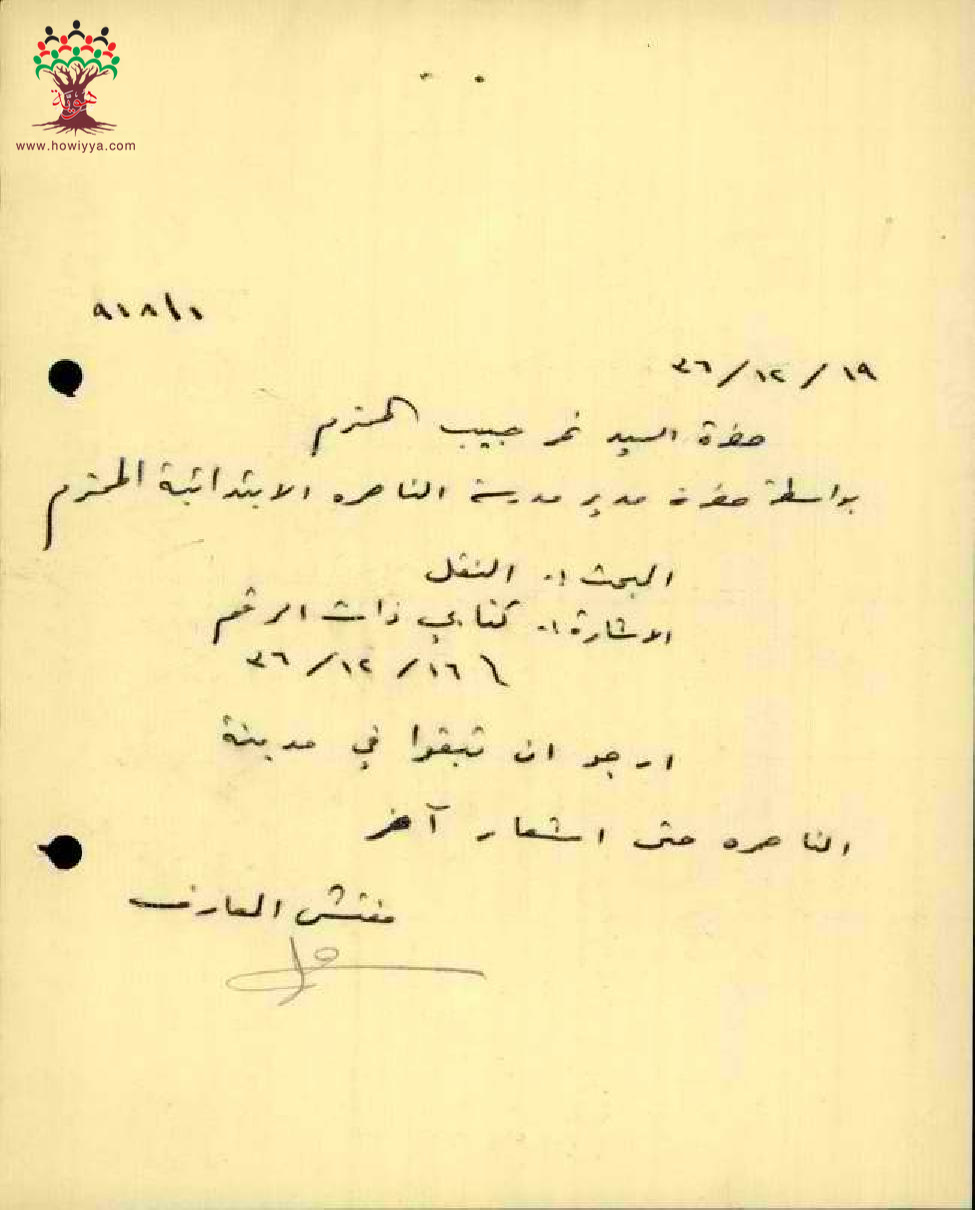 هوية
www.howiyya.com
٩١٨/١
١٩/١٢/٣٦
حضرة السيد نمر حبيب المحترم
بواسطة حضرة مدير مدرسة الناصره الابتدائية المحترم
المبحث :- النقل
الاشارة :- كتابي ذات الرقم
١٦/١٢/٣٦
ارجو ان تبقوا في مدينة
الناصره حتى اشعار آخر
مفتش المعارف